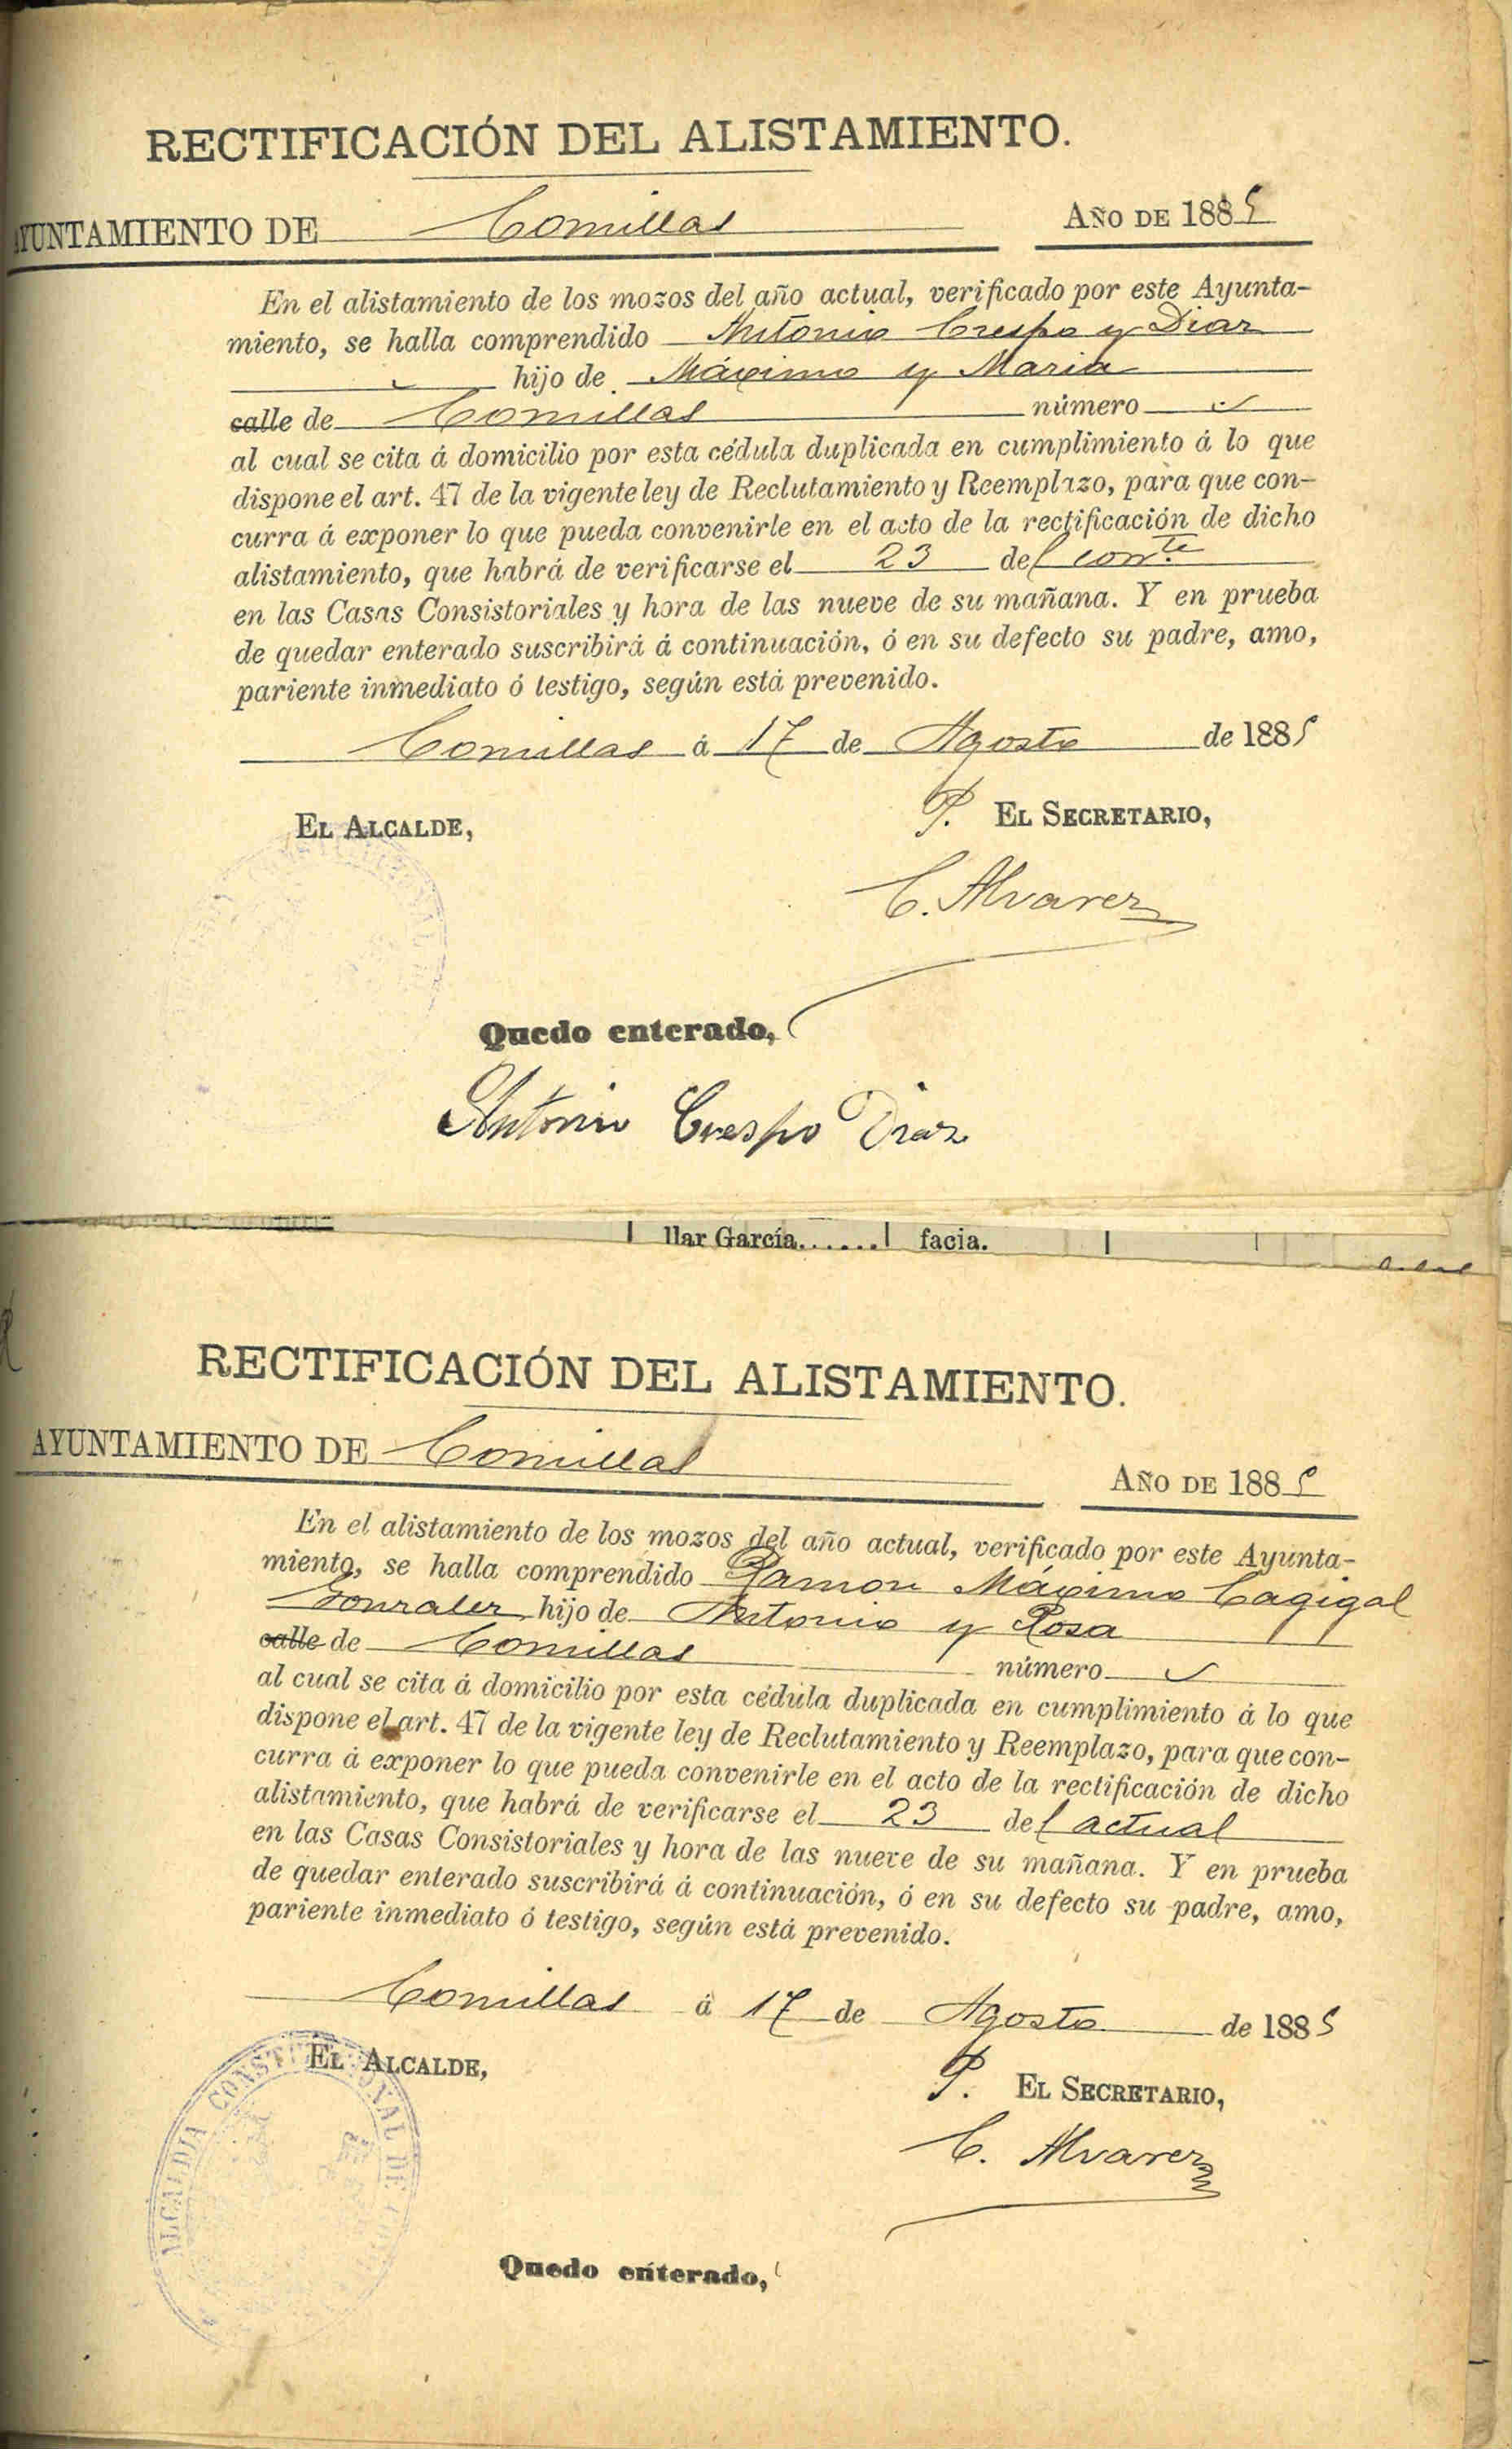 RECTIFICACIÓN DEL ALISTAMIENTO.
AYUNTAMIENTO DE Comillas AÑO DE 1885
En el alistamiento de los mozos del año actual, verificado por este Ayunta-
miento, se halla comprendido Antonio Crespo y Diaz
hijo de Máximo y Maria
calle de Comillas número
al cual se cita á domicilio por esta cédula duplicada en cumplimiento á lo que
dispone el art. 47 de la vigente ley de Reclutamiento y Reemplazo, para que con-
curra á exponer lo que pueda convenirle en el acto de la rectificación de dicho
alistamiento, que habrá de verificarse el 23 del corrte
en las Casas Consistoriales y hora de las nueve de su mañana. Y en prueba
de quedar enterado suscribirá á continuación, ó en su defecto su padre, amo,
pariente inmediato ó testigo, según está prevenido.
Comillas á 17 de Agosto de 1885
EL ALCALDE, P. EL SECRETARIO,
C. Alvarez
Quedo enterado,
Antonio Crespo Diaz
llar García...... facia.
RECTIFICACIÓN DEL ALISTAMIENTO.
AYUNTAMIENTO DE Comillas
AÑO DE 1885
En el alistamiento de los mozos del año actual, verificado por este Ayunta-
miento, se halla comprendido Ramon Máximo Cagigal
Gonzalez hijo de Antonio y Rosa
calle de Comillas número
al cual se cita á domicilio por esta cédula duplicada en cumplimiento á lo que
dispone el art. 47 de la vigente ley de Reclutamiento y Reemplazo, para que con-
curra á exponer lo que pueda convenirle en el acto de la rectificación de dicho
alistamiento, que habrá de verificarse el 23 del actual
en las Casas Consistoriales y hora de las nueve de su mañana. Y en prueba
de quedar enterado suscribirá á continuación, ó en su defecto su padre, amo,
pariente inmediato ó testigo, según está prevenido.
Comillas á 17 de Agosto de 1885
EL ALCALDE, P. EL SECRETARIO,
ALCALDIA CONSTITUCIONAL DE
C. Alvarez
Quedo enterado,